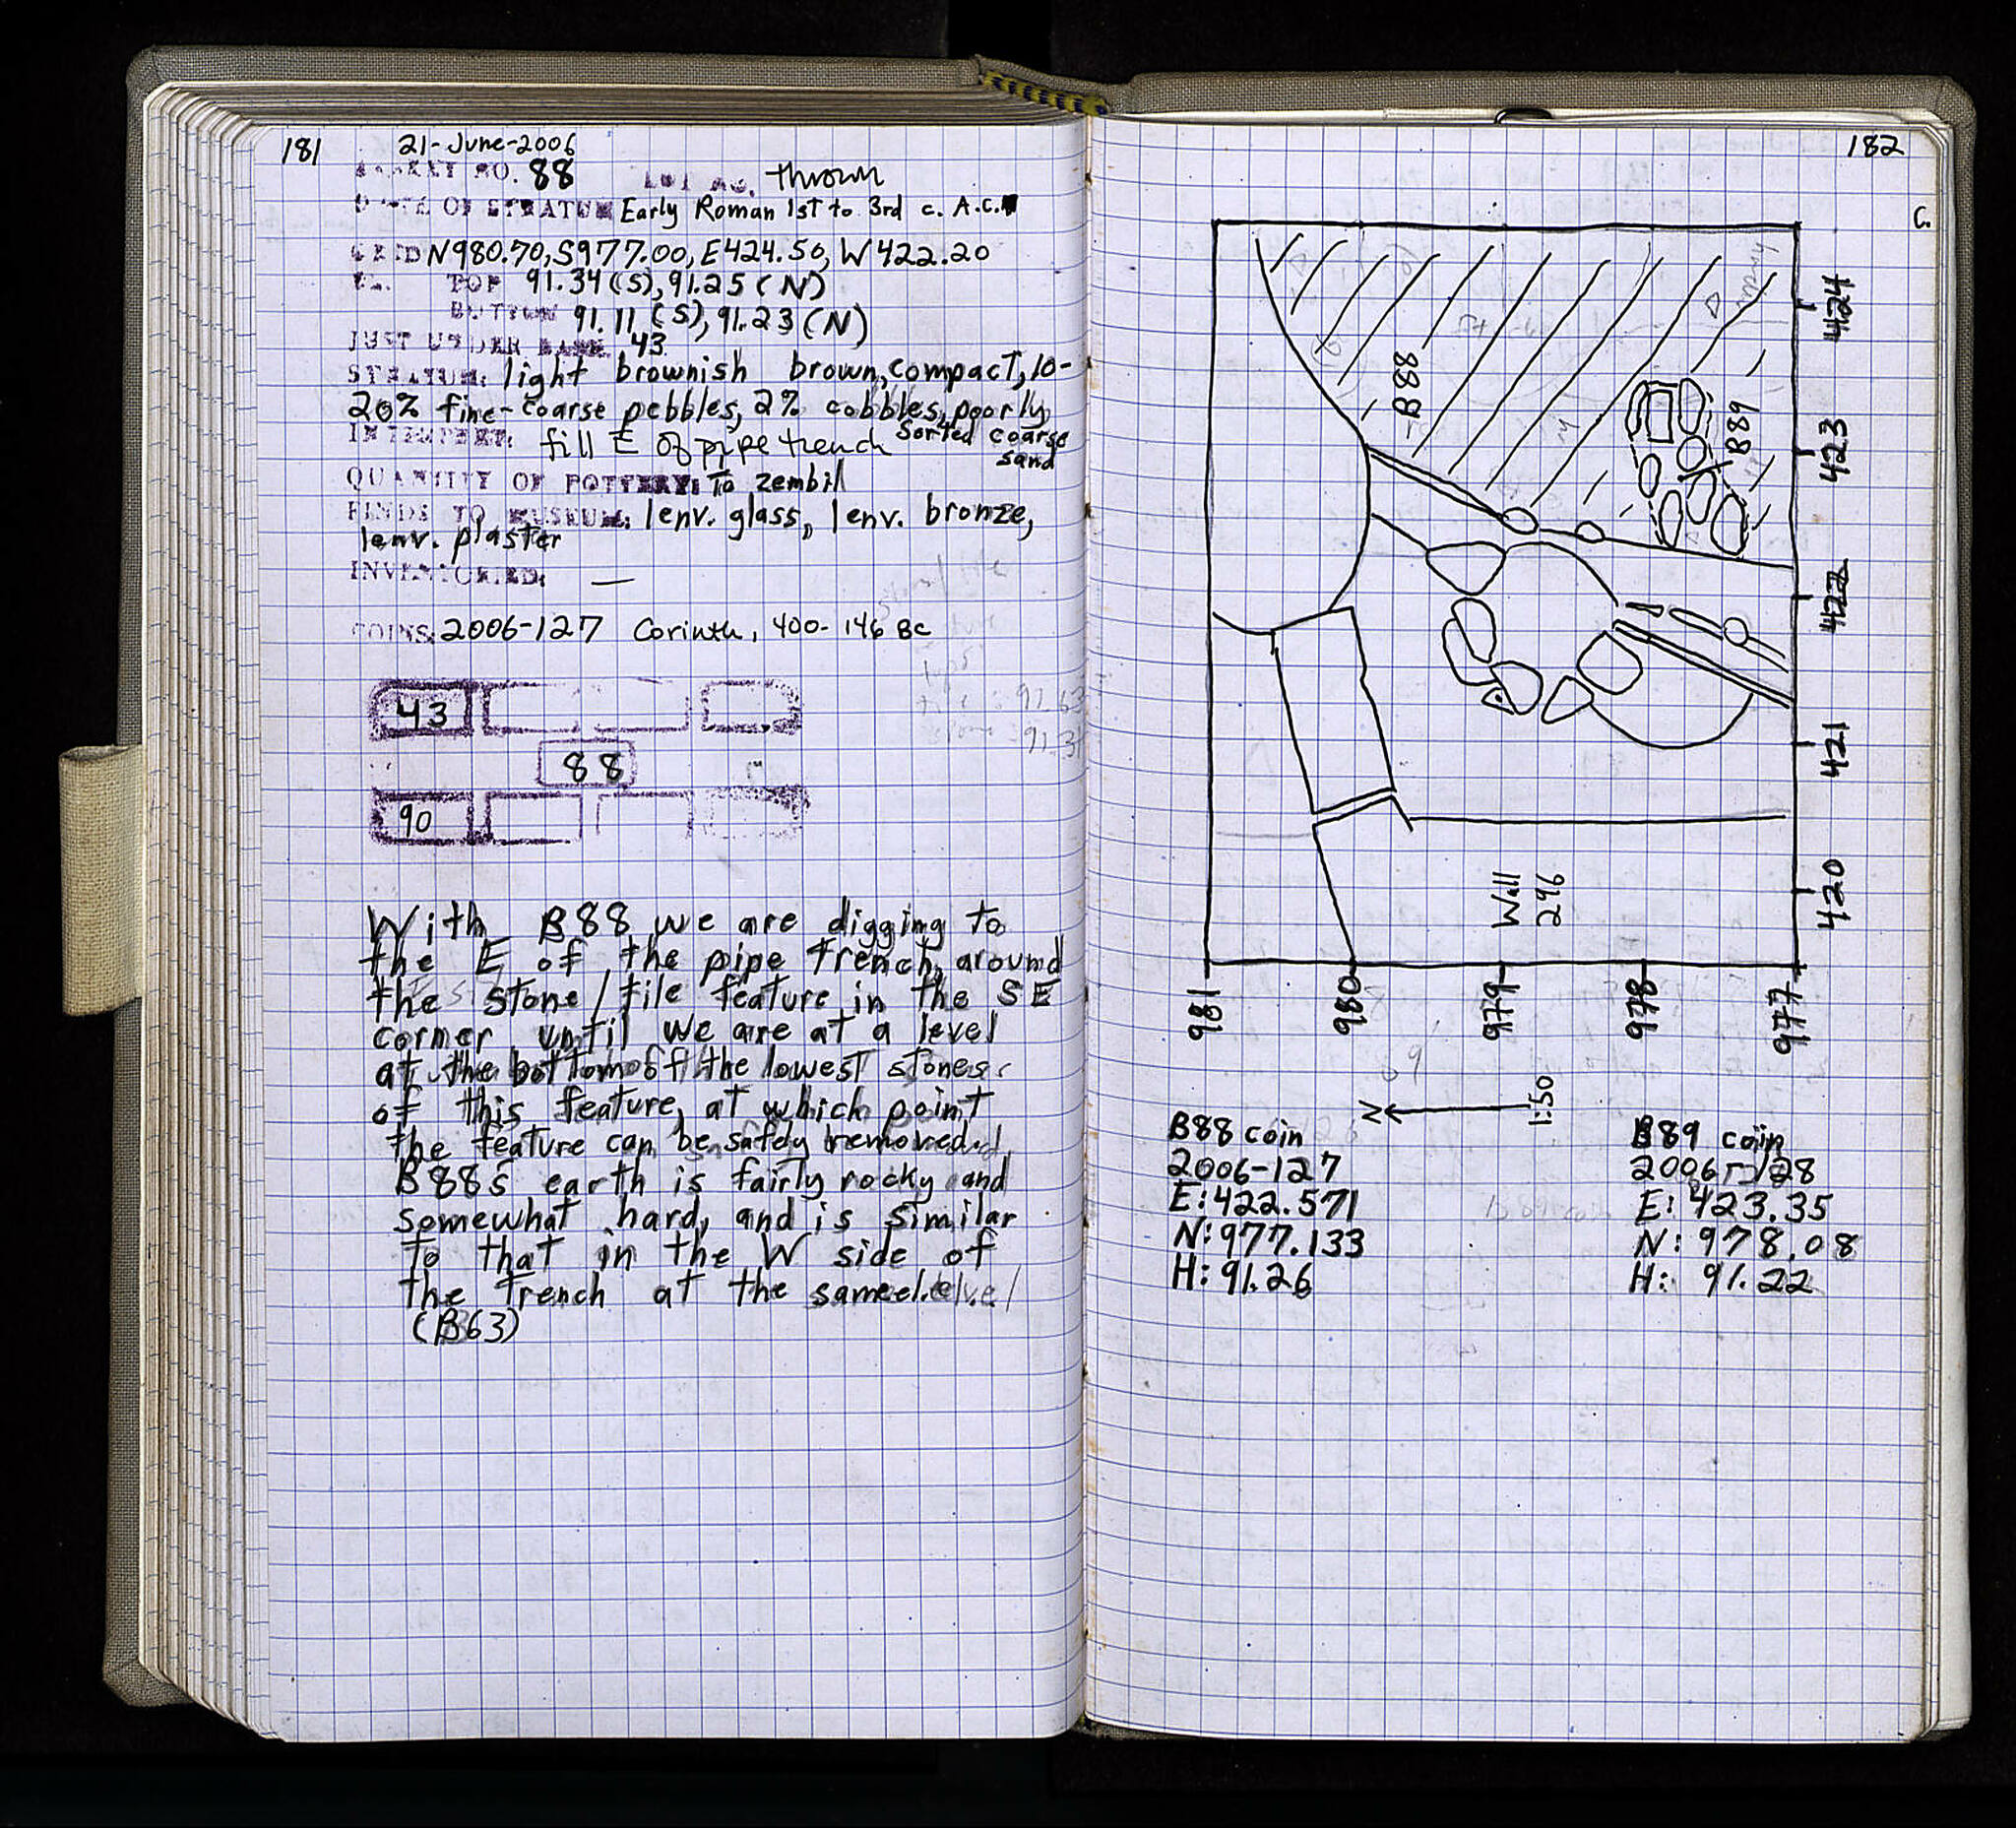 181
21-June-2006
BASKET NO. 88 LOT NO. thrown
DATE OF STRATUM Early Roman 1st to 3rd c. A.C.
GRID N980.70, S977.00, E424.50, W422.20
EL. TOP 91.34 (S), 91.25 (N)
BOTTOM 91.11 (S), 91.23 (N)
JUST UNDER BASK. 43
STRATUM: light brownish brown, compact, 10-
20% fine-coarse pebbles, 2% cobbles, poorly
sorted coarse
sand
INTERPRET: fill E of pipe trench
QUANTITY OF POTTERY: To zembil
FINDS TO MUSEUM: 1env. glass, 1env. bronze,
1env. plaster
INVENTORIED: —
COINS: 2006-127 Corinth, 400-146 BC
43
88
90
With B88 we are digging to
the E of the pipe trench, around
the stone/tile feature in the SE
corner until we are at a level
at the bottom of the lowest stones
of this feature, at which point
the feature can be safely removed.
B88s earth is fairly rocky and
somewhat hard, and is similar
to that in the W side of
the trench at the same level
(B63)
182
C.
424
423
422
421
420
B88
B89
Wall
296
981
980
979
978
977
N
1:50
B88 coin
2006-127
E: 422.571
N: 977.133
H: 91.26
B89 coin
2006-128
E: 423.35
N: 978.08
H: 91.22